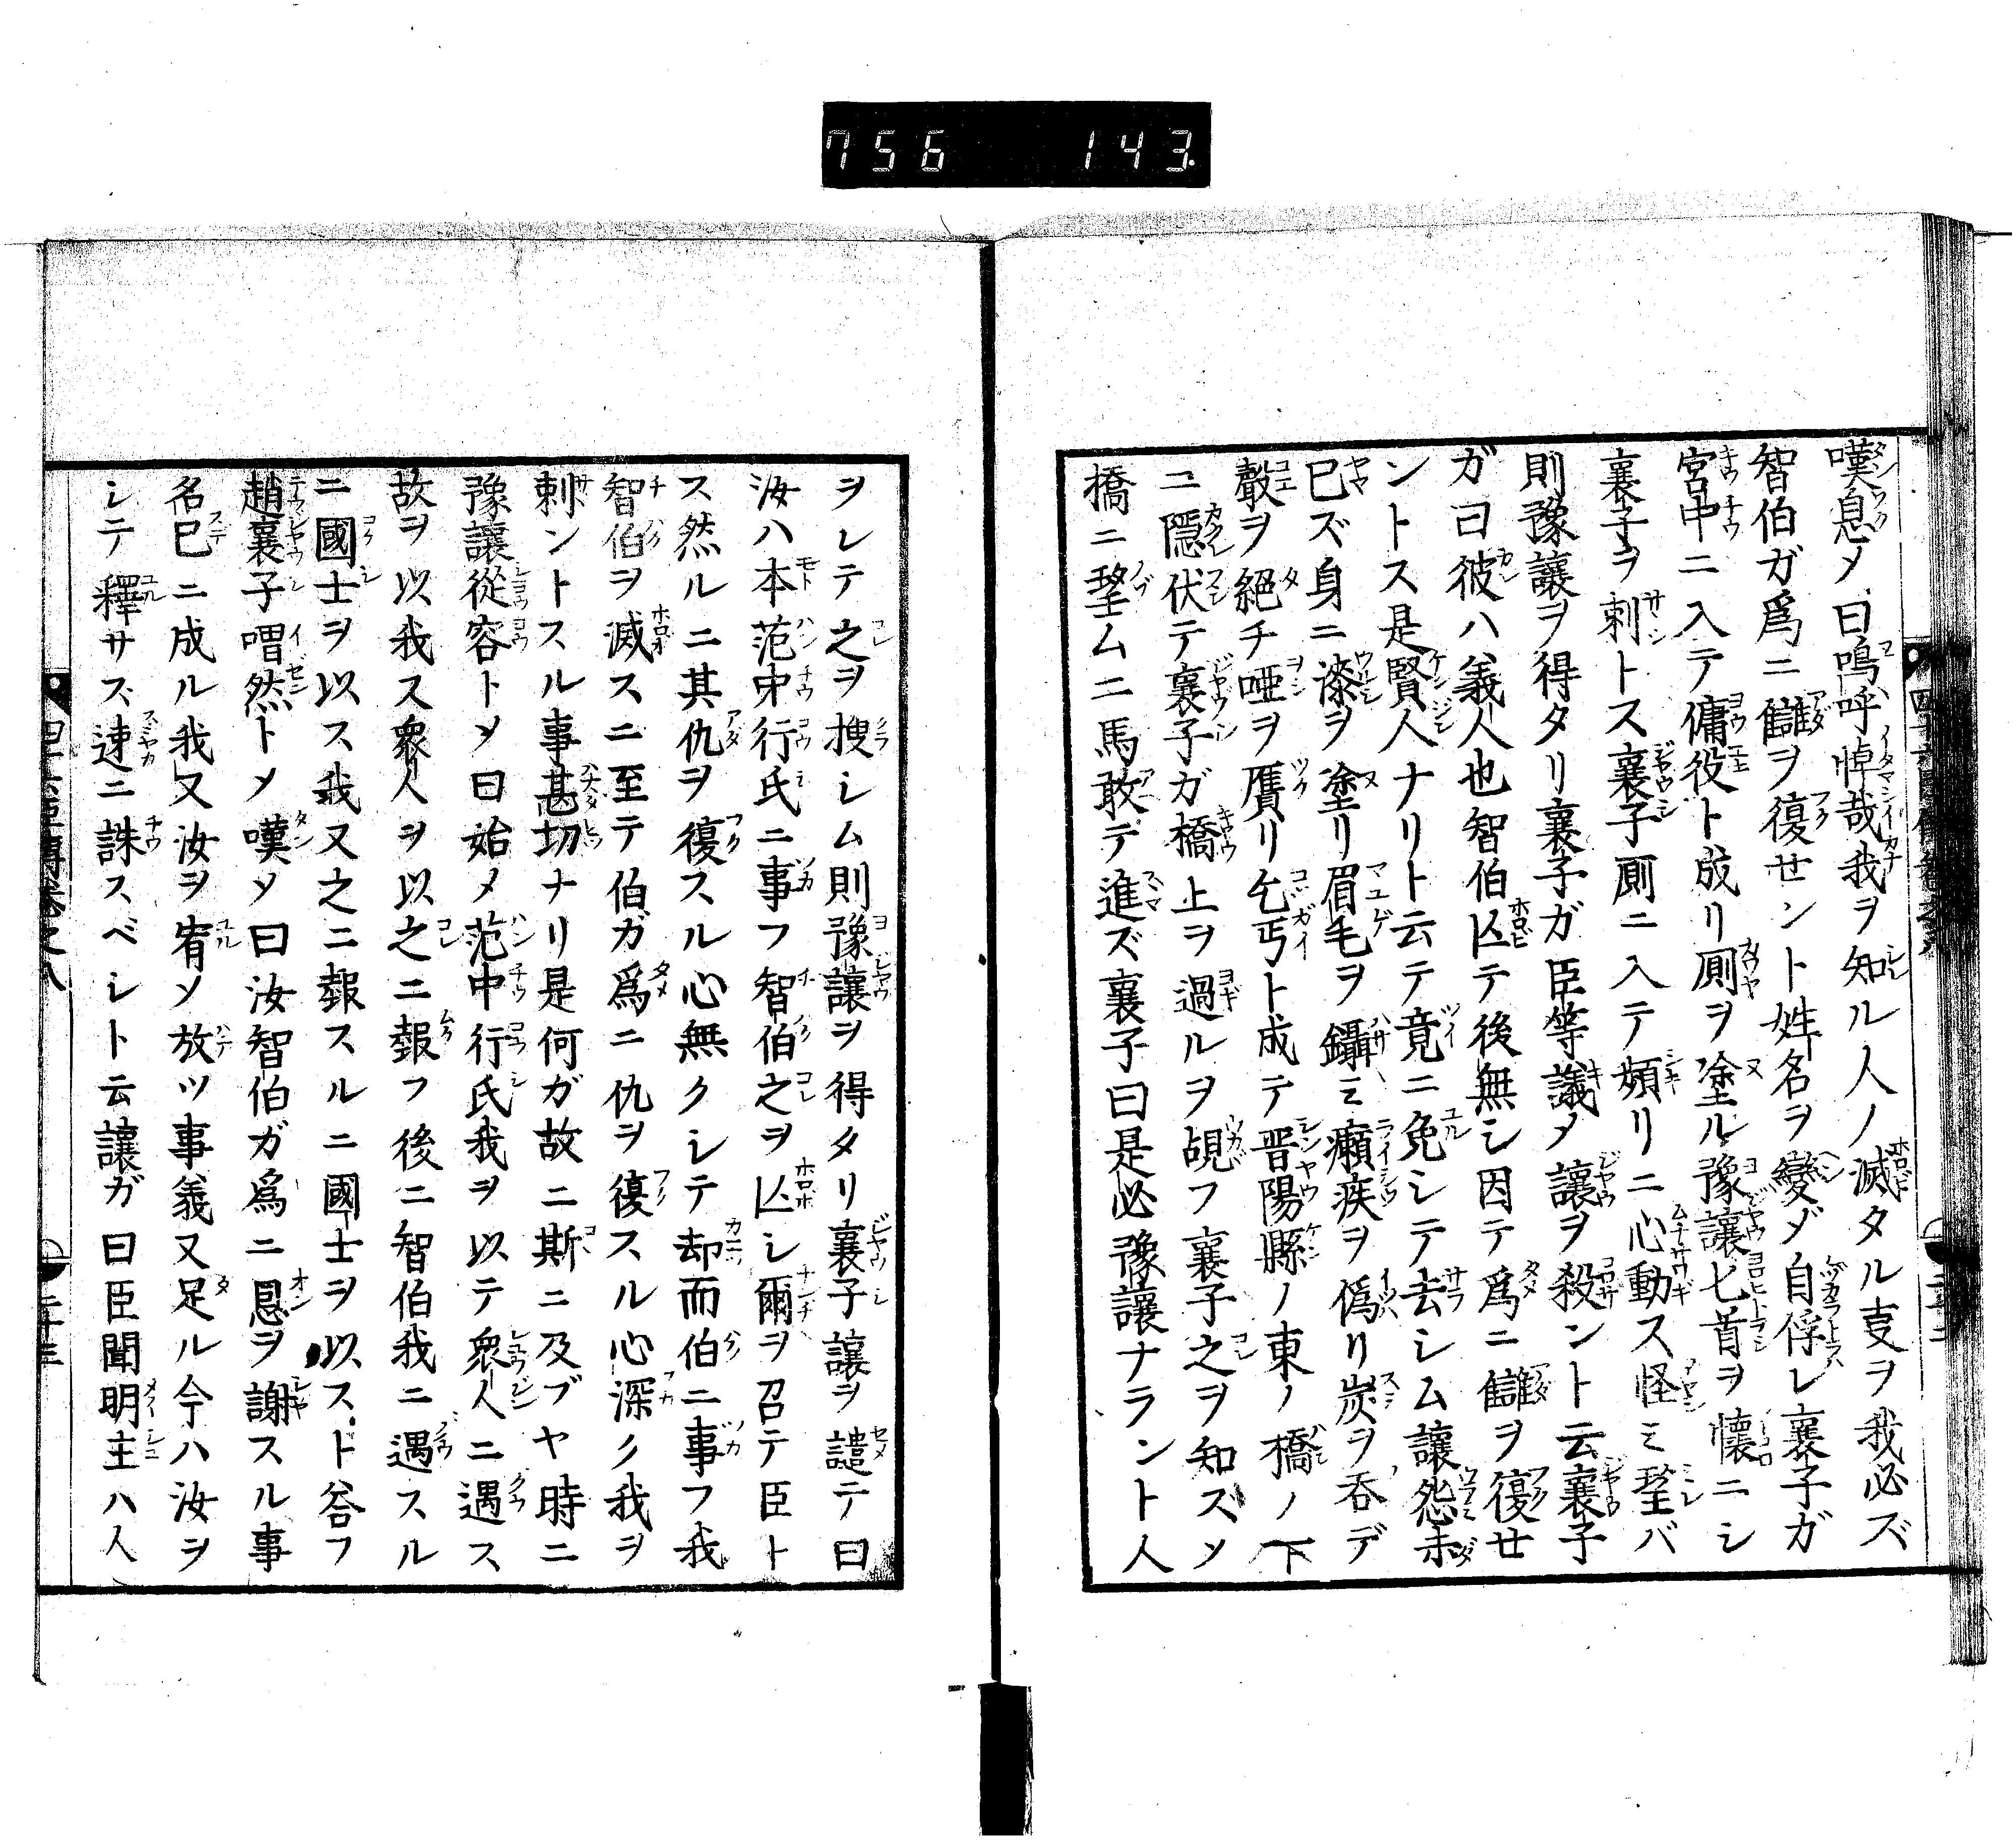 756 143
嘆息メ曰嗚呼悼哉我ヲ知ル人ノ滅タル叓ヲ我必ズ
智伯ガ爲ニ讎ヲ復セント姓名ヲ變ジ自俘レ襄子ガ
宮中ニ入テ傭役ト成リ厠ヲ塗ル豫讓匕首ヲ懷ニシ
襄子ヲ刺トス襄子厠ニ入テ頻リニ心動ス怪ミ望バ
則豫讓ヲ得タリ襄子ガ臣等議メ讓ヲ殺ント云襄子
ガ曰彼ハ義人也智伯亾テ後無シ因テ爲ニ讎ヲ復せ
ントス是賢人ナリト云テ竟ニ免シテ去シム讓怨未
已ズ身ニ漆ヲ塗リ眉毛ヲ鑷ミ癩疾ヲ僞リ炭ヲ呑デ
聲ヲ絕チ啞ヲ贋リ乞丐ト成テ晋陽縣ノ東ノ橋ノ下
ニ隱伏テ襄子ガ橋上ヲ過ルヲ覘フ襄子之ヲ知ズメ
橋ニ望ムニ馬敢デ進ズ襄子曰是必豫讓ナラント人
ヲレテ之ヲ搜シム則豫讓ヲ得タリ襄子讓ヲ譴テ曰
汝ハ本范中行氏ニ事フ智伯之ヲ亾シ爾ヲ召テ臣ト
ス然ルニ其仇ヲ復スル心無クシテ却而伯ニ事フ我
智伯ヲ滅スニ至テ伯ガ爲ニ仇ヲ復スル心深ク我ヲ
刺ントスル事甚切ナリ是何ガ故ニ斯ニ及ブヤ時ニ
豫讓從容トメ曰始メ范中行氏我ヲ以テ衆人ニ遇ス
故ヲ以我ス衆人ヲ以之ニ報フ後ニ智伯我ニ遇スル
ニ國士ヲ以ス我又之ニ報スルニ國士ヲ以スト答フ
趙襄子喟然トメ嘆メ曰汝智伯ガ爲ニ恩ヲ謝スル事
名已ニ成ル我又汝ヲ宥メ放ツ事義又足ル今ハ汝ヲ
シテ釋サズ速ニ誅スベシト云讓ガ曰臣聞明主ハ人